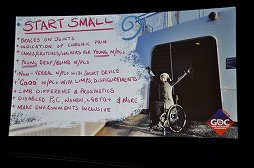 START SMALL
• BRACES ON JOINTS
• INDICATION OF CHRONIC PAIN
• CANES/CRUTCHES/WALKERS FOR YOUNG N/PCs
• YOUNG DEAF/BLIND N/PCs
• NON-VERBAL N/PCs WITH SMART DEVICE
• "GOOD" N/PCs WITH LIMPS, DISFIGUREMENTS
• LIMB DIFFERENCE & PROSTHETICS
• DISABLED PoC, WOMEN, LGBTQ+ & MORE
• MAKE ENVIRONMENTS INCLUSIVE
GDC